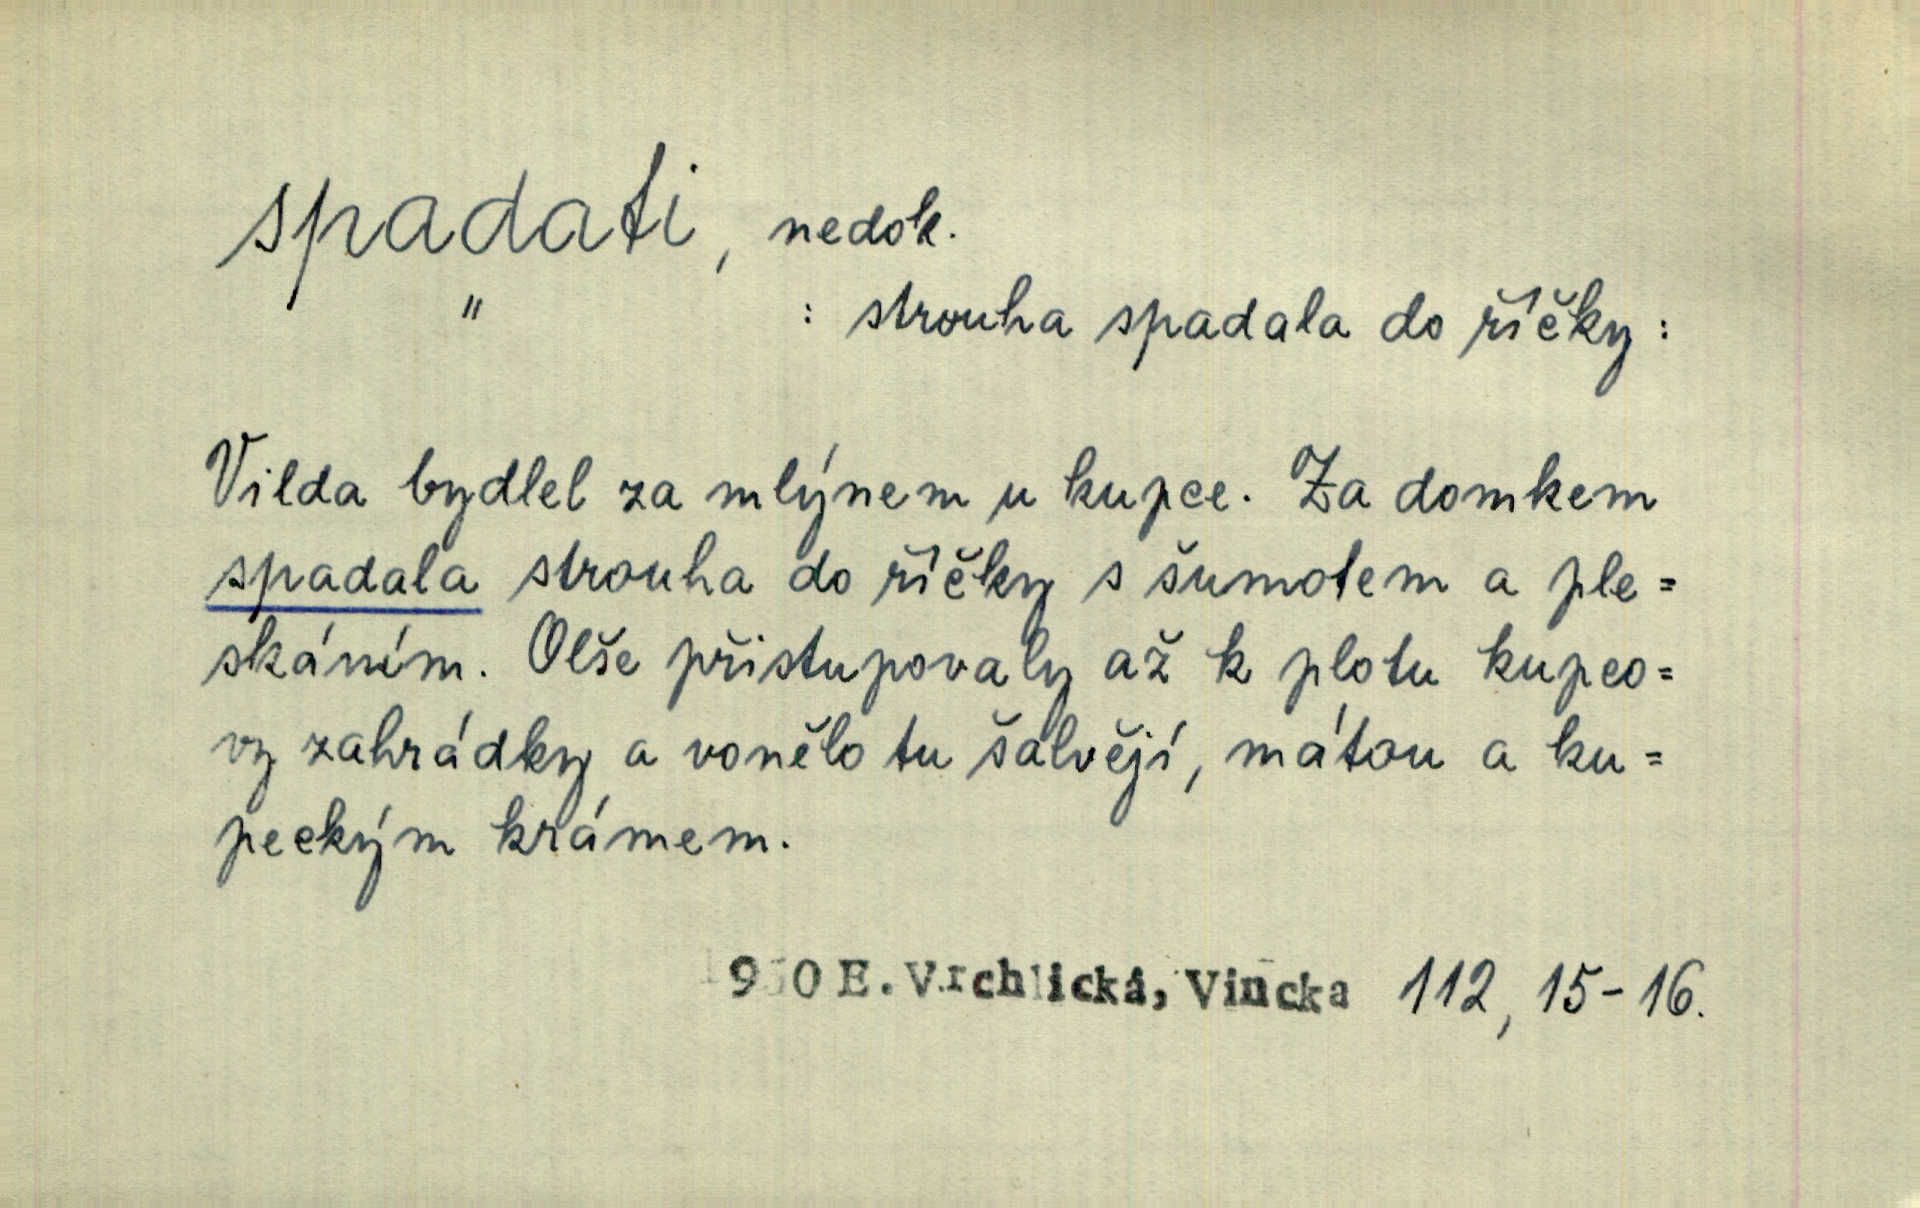 spadati, nedok.
" : strouha spadala do říčky :
Vilda bydlel za mlýnem u kupce. Za domkem
spadala strouha do říčky s šumotem a ple=
skáním. Olše přistupovaly až k plotu kupco=
vy zahrádky a vonělo tu šalvějí, mátou a ku=
peckým krámem.
1930 E. Vrchlická, Vincka 112, 15-16.